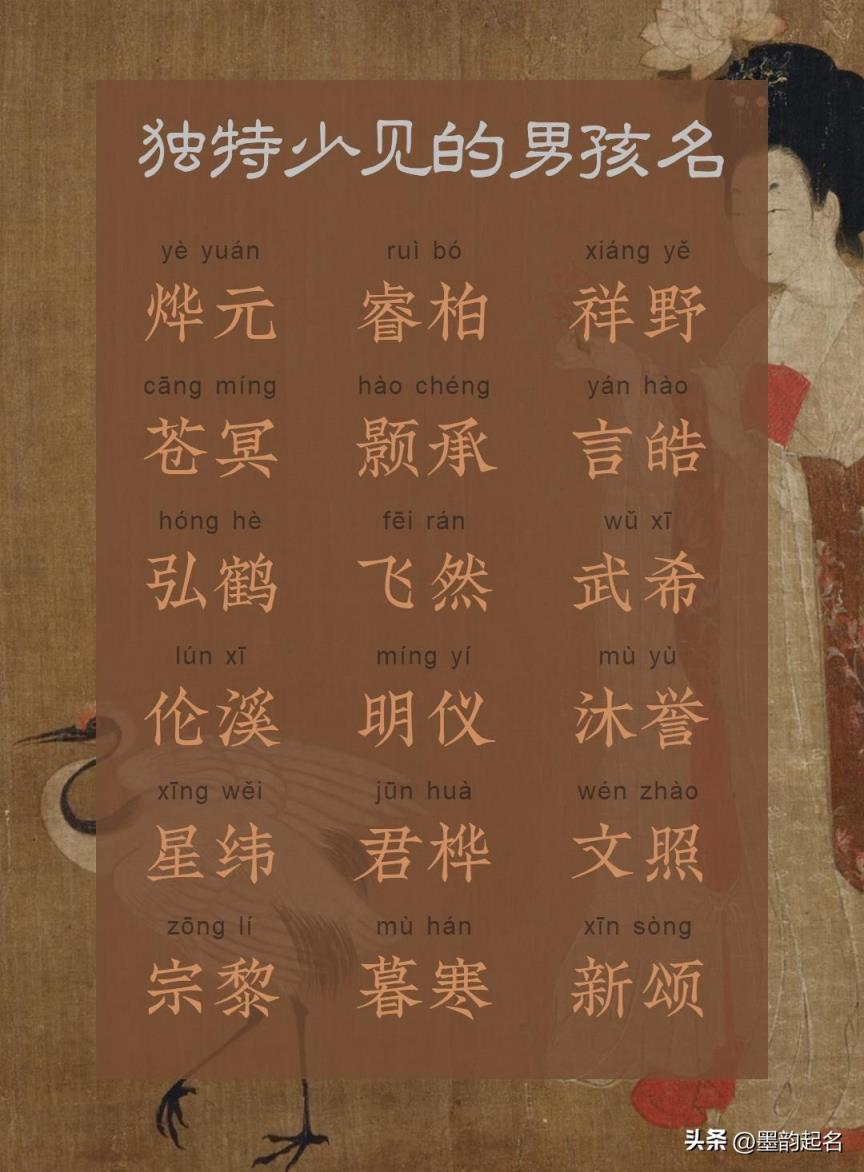 独特少见的男孩名
yè yuán ruì bó xiáng yě
烨元 睿柏 祥野
cāng míng hào chéng yán hào
苍冥 颢承 言皓
hóng hè fēi rán wǔ xī
弘鹤 飞然 武希
lún xī míng yí mù yù
伦溪 明仪 沐誉
xīng wěi jūn huà wén zhào
星纬 君桦 文照
zōng lí mù hán xīn sòng
宗黎 暮寒 新颂
头条 @墨韵起名